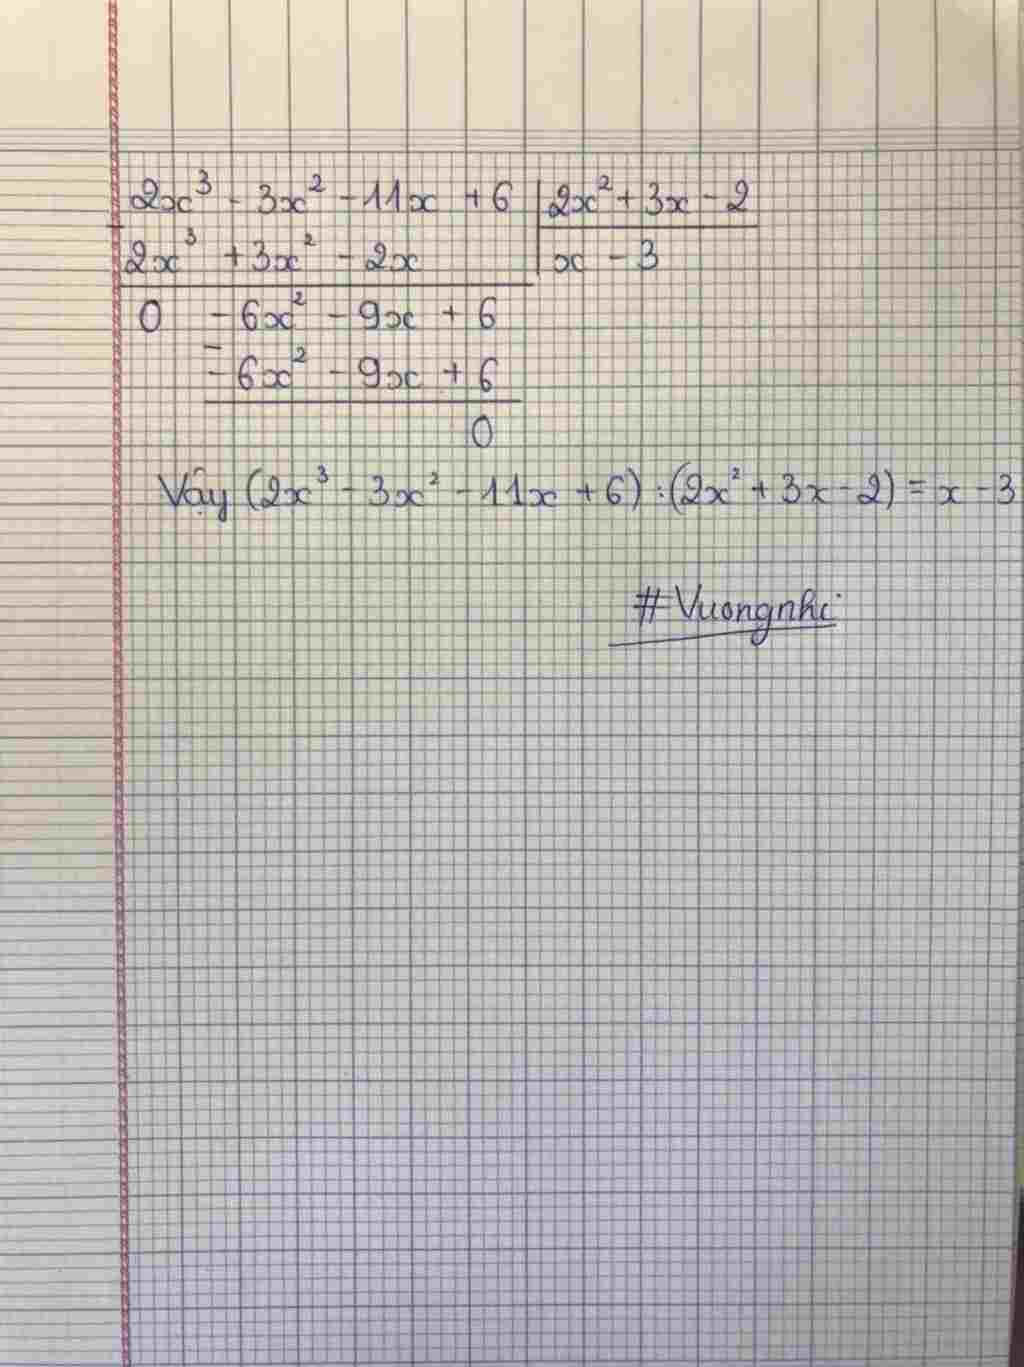 2x³ - 3x² - 11x + 6 | 2x² + 3x - 2
2x³ + 3x² - 2x | x - 3
0 - 6x² - 9x + 6
- 6x² - 9x + 6
0
Vậy (2x³ - 3x² - 11x + 6) : (2x² + 3x - 2) = x - 3
#Vuongnhi